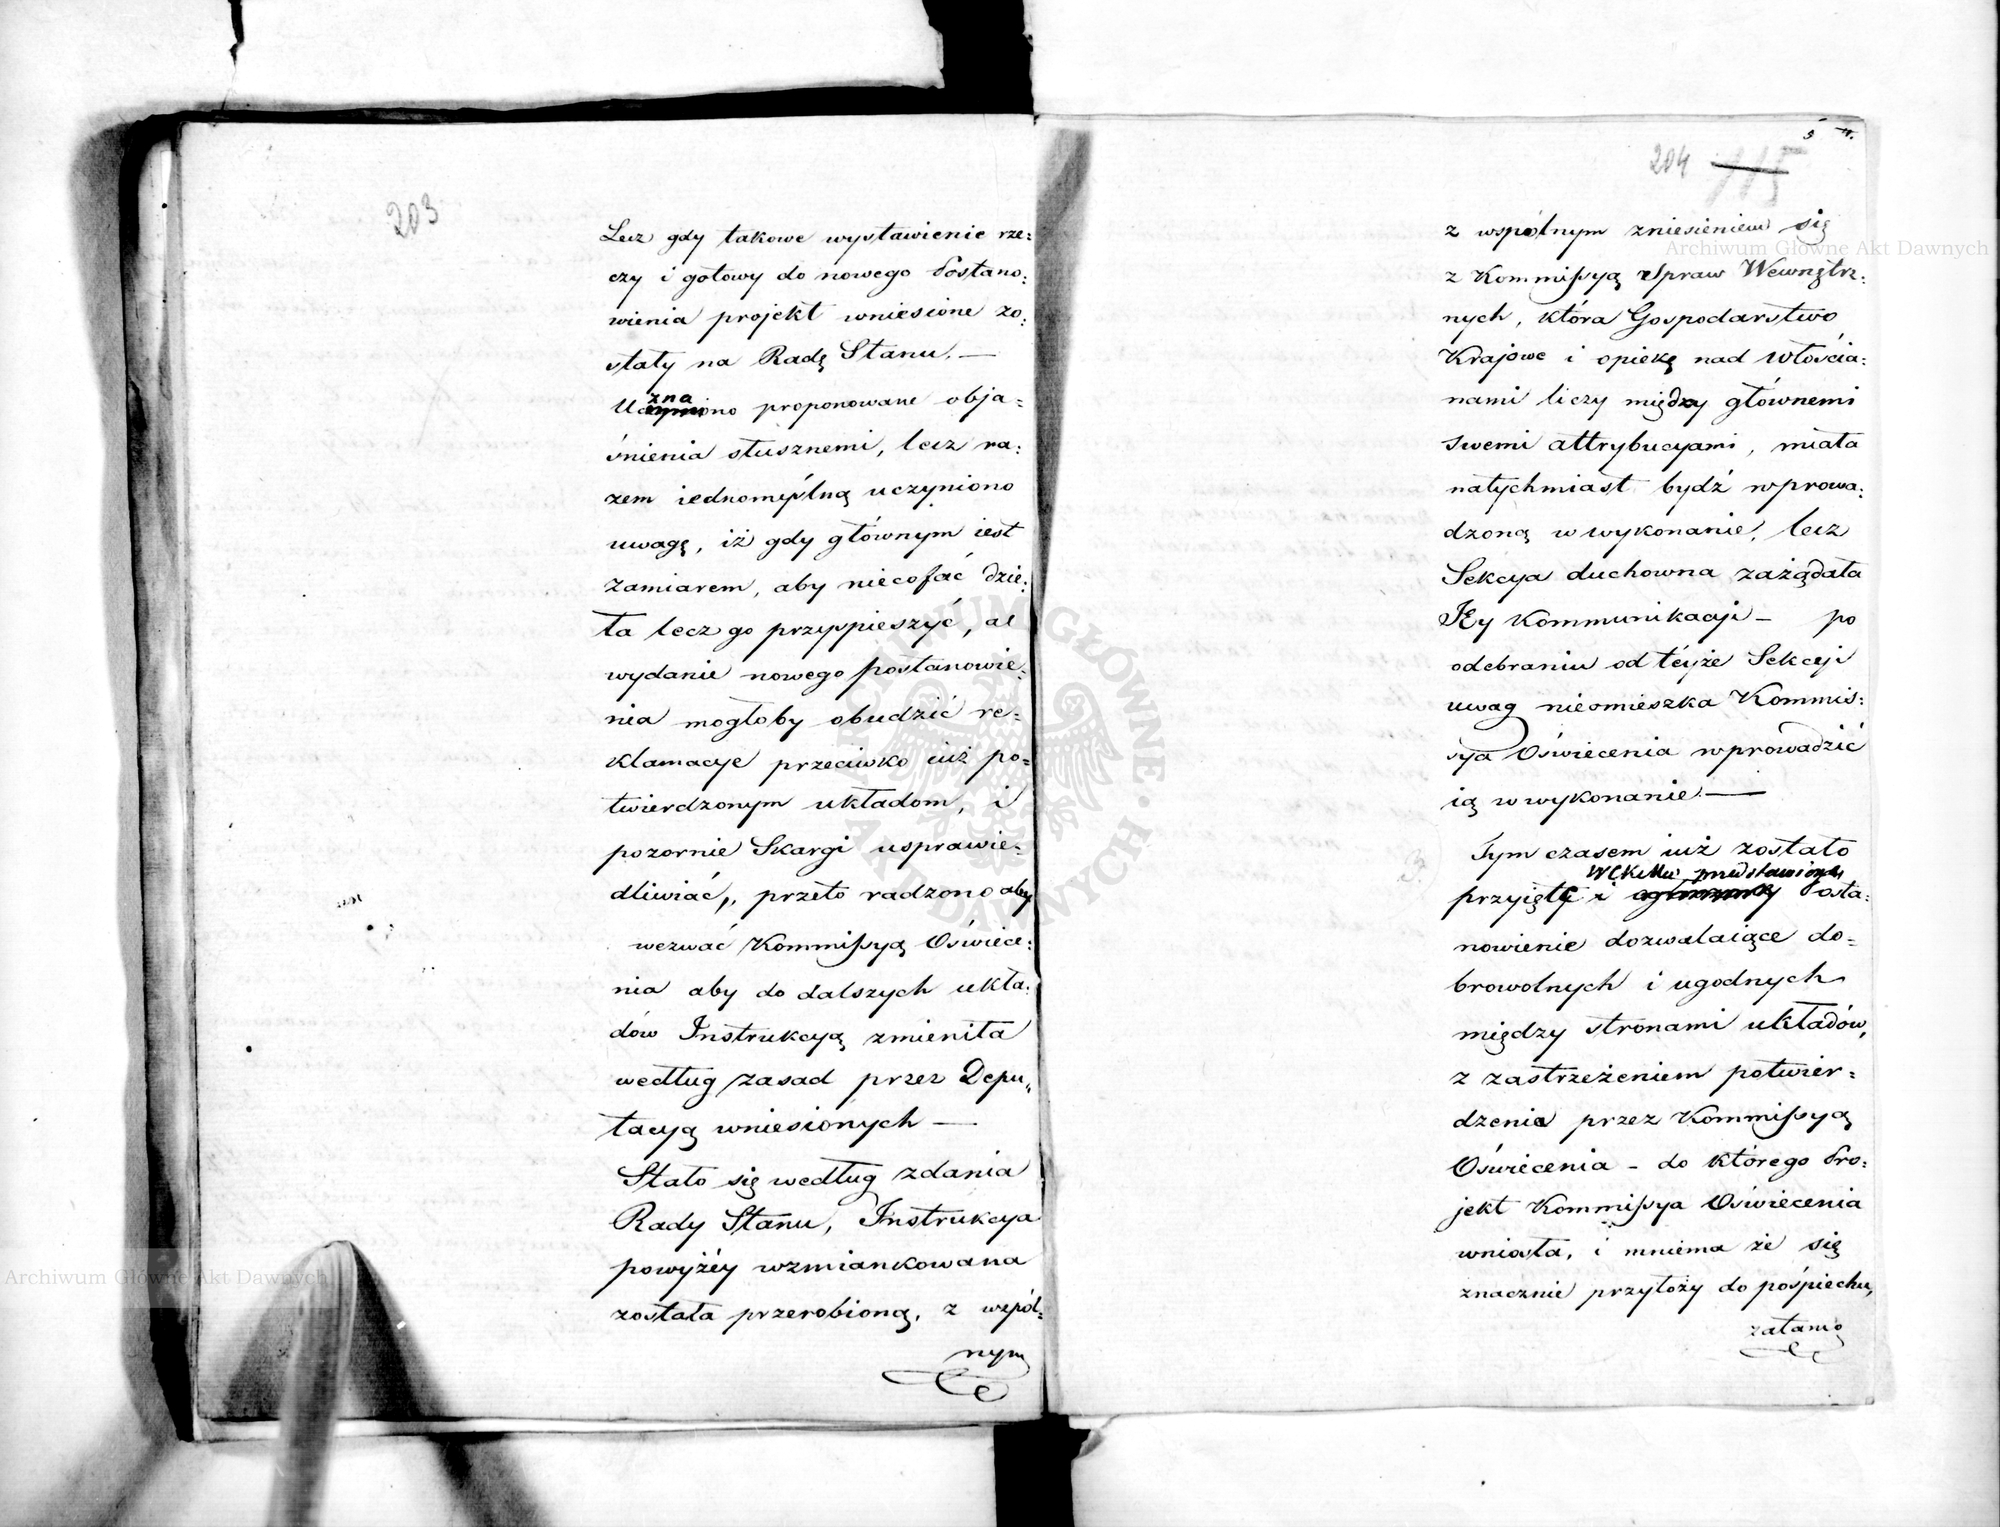 203
Lecz gdy takowe wystawienie rze:
czy i gotowy do nowego Postano:
wienia projekt wniesione zo:
stały na Radę Stanu. —
zna
Uczyniono proponowane obja:
śnienia słusznemi, lecz ra:
zem iednomyślną uczyniono
uwagę, iż gdy głównym iest
zamiarem, aby niecofać dzie:
ła lecz go przyspieszyć, a
wydanie nowego postanowie:
nia mogłoby obudzić re:
klamacye przeciwko iuż po:
twierdzonym układom, i
pozornie Skargi usprawie:
dliwiać, przeto radzono aby
wezwać Kommissyą Oświece:
nia aby do dalszych ukła:
dów Instrukcyą zmieniła
według zasad przez Depu,,
tacyą wniesionych —
Stało się według zdania
Rady Stanu, Instrukcya
powyżéy wzmiankowana
została przerobioną, z wspól:
nym
5
204 115
z wspólnym zniesieniem się
z Kommissyą Spraw Wewnętrz:
nych, która Gospodarstwo
Krajowe i opiekę nad Włościa:
nami liczy między głównemi
swemi attrybucyami, miała
natychmiast bydź wprowa:
dzoną w wykonanie, lecz
Sekcya duchowna zażądała
Jéy Kommunikacji — po
odebraniu od téyże Sekcji
uwag nieomieszka Kommis:
sya Oświecenia wprowadzić
ią w wykonanie. —
3.
Tym czasem iuż zostało
WCKMci przedstawione
przyięte i Posta:
nowienie dozwalaiące do:
browolnych i ugodnych
między stronami układów,
z zastrzeżeniem potwier:
dzenia przez Kommissyą
Oświecenia — do którego Pro:
jekt Kommissya Oświecenia
wniosła, i mniema że się
znacznie przyłoży do pośpiechu,
Archiwum Główne Akt Dawnych
Archiwum Główne Akt Dawnych
ARCHIWUM GŁÓWNE AKT DAWNYCH